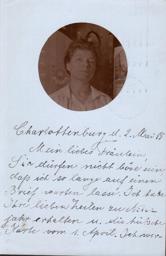 Charlottenburg d. 2. Mai 15
Mein liebes Fräulein,
Sie dürfen nicht böse sein
daß ich so lange auf einen
Brief warten lasse. Ich habe
Ihre lieben Zeilen zu
jahr erhalten u. die hübsche
Karte vom 1. April. Ich